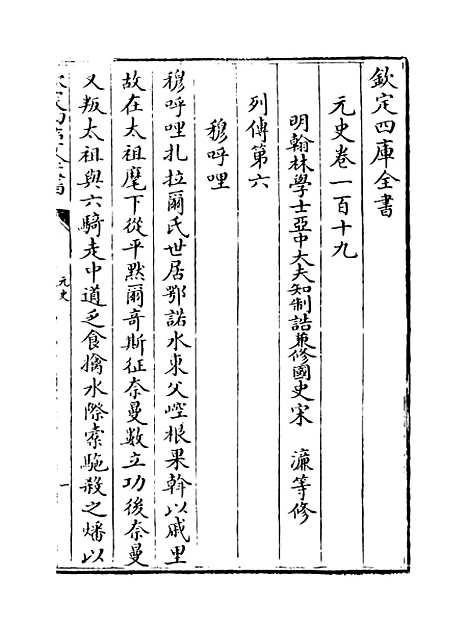 欽定四庫全書
元史卷一百十九
明翰林學士亞中大夫知制誥兼修國史宋　濂等修
列傳第六
穆呼哩
穆呼哩扎拉爾氏世居鄂諾水東父崆根果斡以戚里
故在太祖麾下從平默爾奇斯征奈曼數立功後奈曼
又叛太祖與六騎走中道乏食擒水際橐駞殺之燔以
元史
一